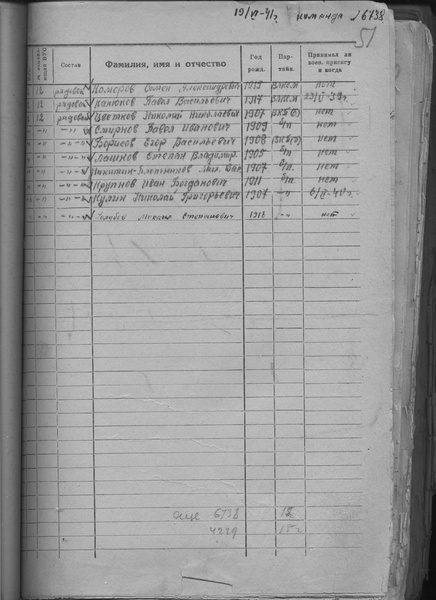 19/VI-41г. команда №6738
51
Состав Фамилия, имя и отчество Год рожд. Пар-тийн. Принимал ли воен. присягу и когда
12 рядовой Комаров Семен Александрович 1915 ВЛКСМ нет
12 рядовой Канюков Павел Васильевич 1917 ВЛКСМ 23/II-39г.
12 рядовой Цветков Николай Николаевич 1907 ВКП(б) нет
-"- -"- Смирнов Павел Иванович 1909 б/п нет
-"- -"- Борисов Егор Васильевич 1908 ВКП(б) нет
-"- -"- Степан Владимир. 1905 б/п нет
-"- -"- 1907 б/п. нет
-"- -"- Крупнов Иван Богданович 1911 б/п. нет
-"- -"- Кулин Николай Григорьевич 1907 -"- 6/II-40г.
-"- -"- Степанович 1918 -"- нет
еще 6738 18
4229 15